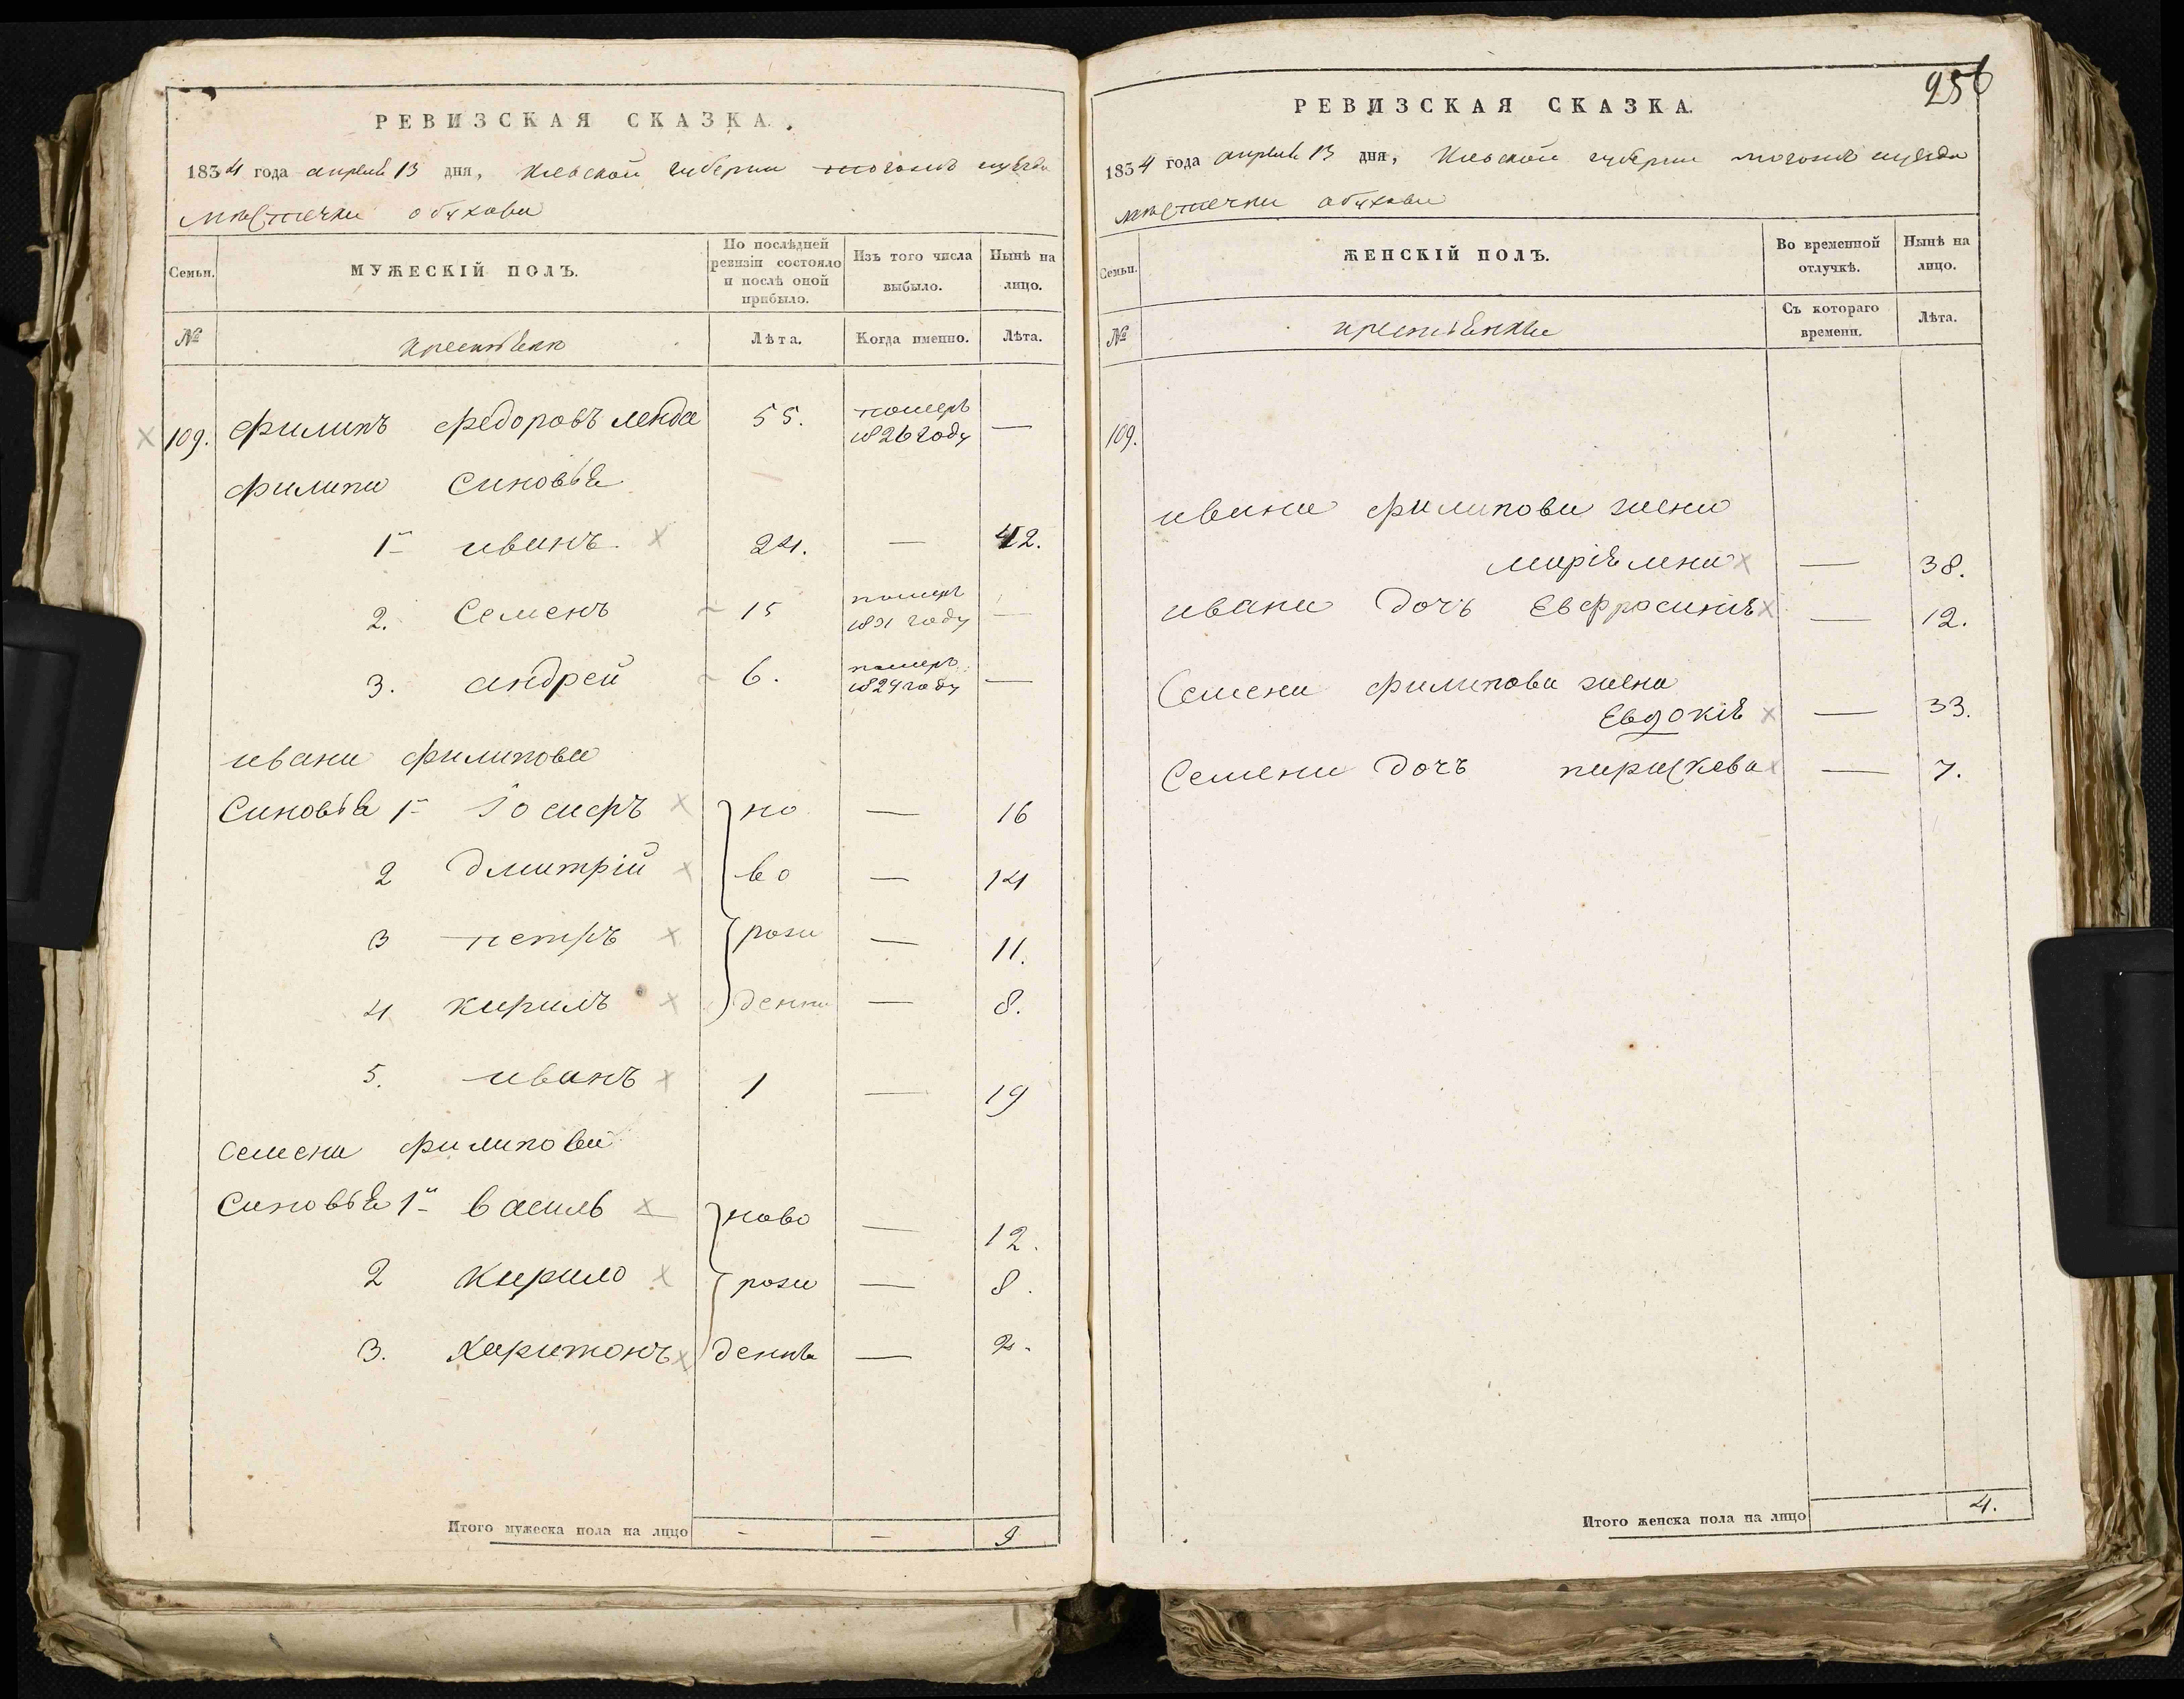 РЕВИЗСКАЯ СКАЗКА.
1834 года апреля 13 дня, Киевской губернии тогожъ уезда
местечка обухова
Семьи.
МУЖЕСКІЙ ПОЛЪ.
По послѣдней ревизіи состояло и послѣ оной прибыло.
Изъ того числа выбыло.
Нынѣ на лицо.
№
Лѣта.
Когда именно.
Лѣта.
109. филипъ федоровъ ленда 55. померъ 1826 году —
филипа синовья
1й иванъ 24. — 42.
2. Семенъ 15 померъ 1831 году —
3. андрей 6. померъ 1824 году —
ивана филипова
синовья 1й Іосифъ но — 16
2 дмитрій во — 14
3 петръ рожа — 11.
4 кирилъ — 8.
5. иванъ 1 — 19
семена филипова
синовья 1й василь ново — 12.
2 кирило рожа — 8.
3. харитонъ — 2.
Итого мужеска пола на лицо - - 9
256
РЕВИЗСКАЯ СКАЗКА.
1834 года апреля 13 дня, Киевской губернии тогожъ уезда
местечка обухова
Семьи.
ЖЕНСКІЙ ПОЛЪ.
Во временной отлучкѣ.
Нынѣ на лицо.
№
Съ котораго времени.
Лѣта.
109.
ивана филипова жена
— 38.
ивана дочъ Евфросинія — 12.
Семена филипова жена
Евдокія — 33.
Семена дочъ параскева — 7.
Итого женска пола на лицо 4.